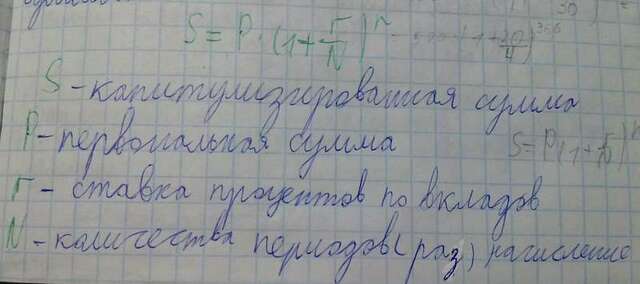 S = P · (1 + r/N)ⁿ
S - капитулизированная сумма
P - первональная сумма
S = P(1 +
r - ставка процентов по вкладов
N - количества периодов (раз) начисление